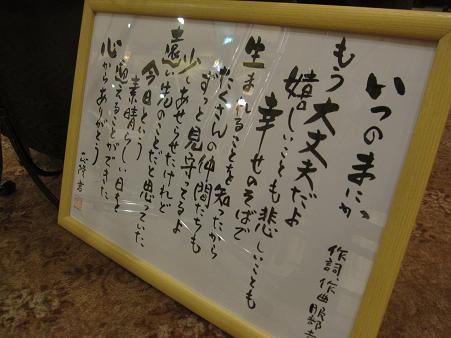 いつのまにか
もう大丈夫だよ
嬉しいことも悲しいことも
幸せのそばで
生まれることを知ったから
たくさんの仲間たちも
ずっと見守ってるよ
少しあせらせたけれど
遠い先のことだと思っていた
今日という
素晴らしい日を
迎えることができた
心からありがとう
作詞、作曲 服部